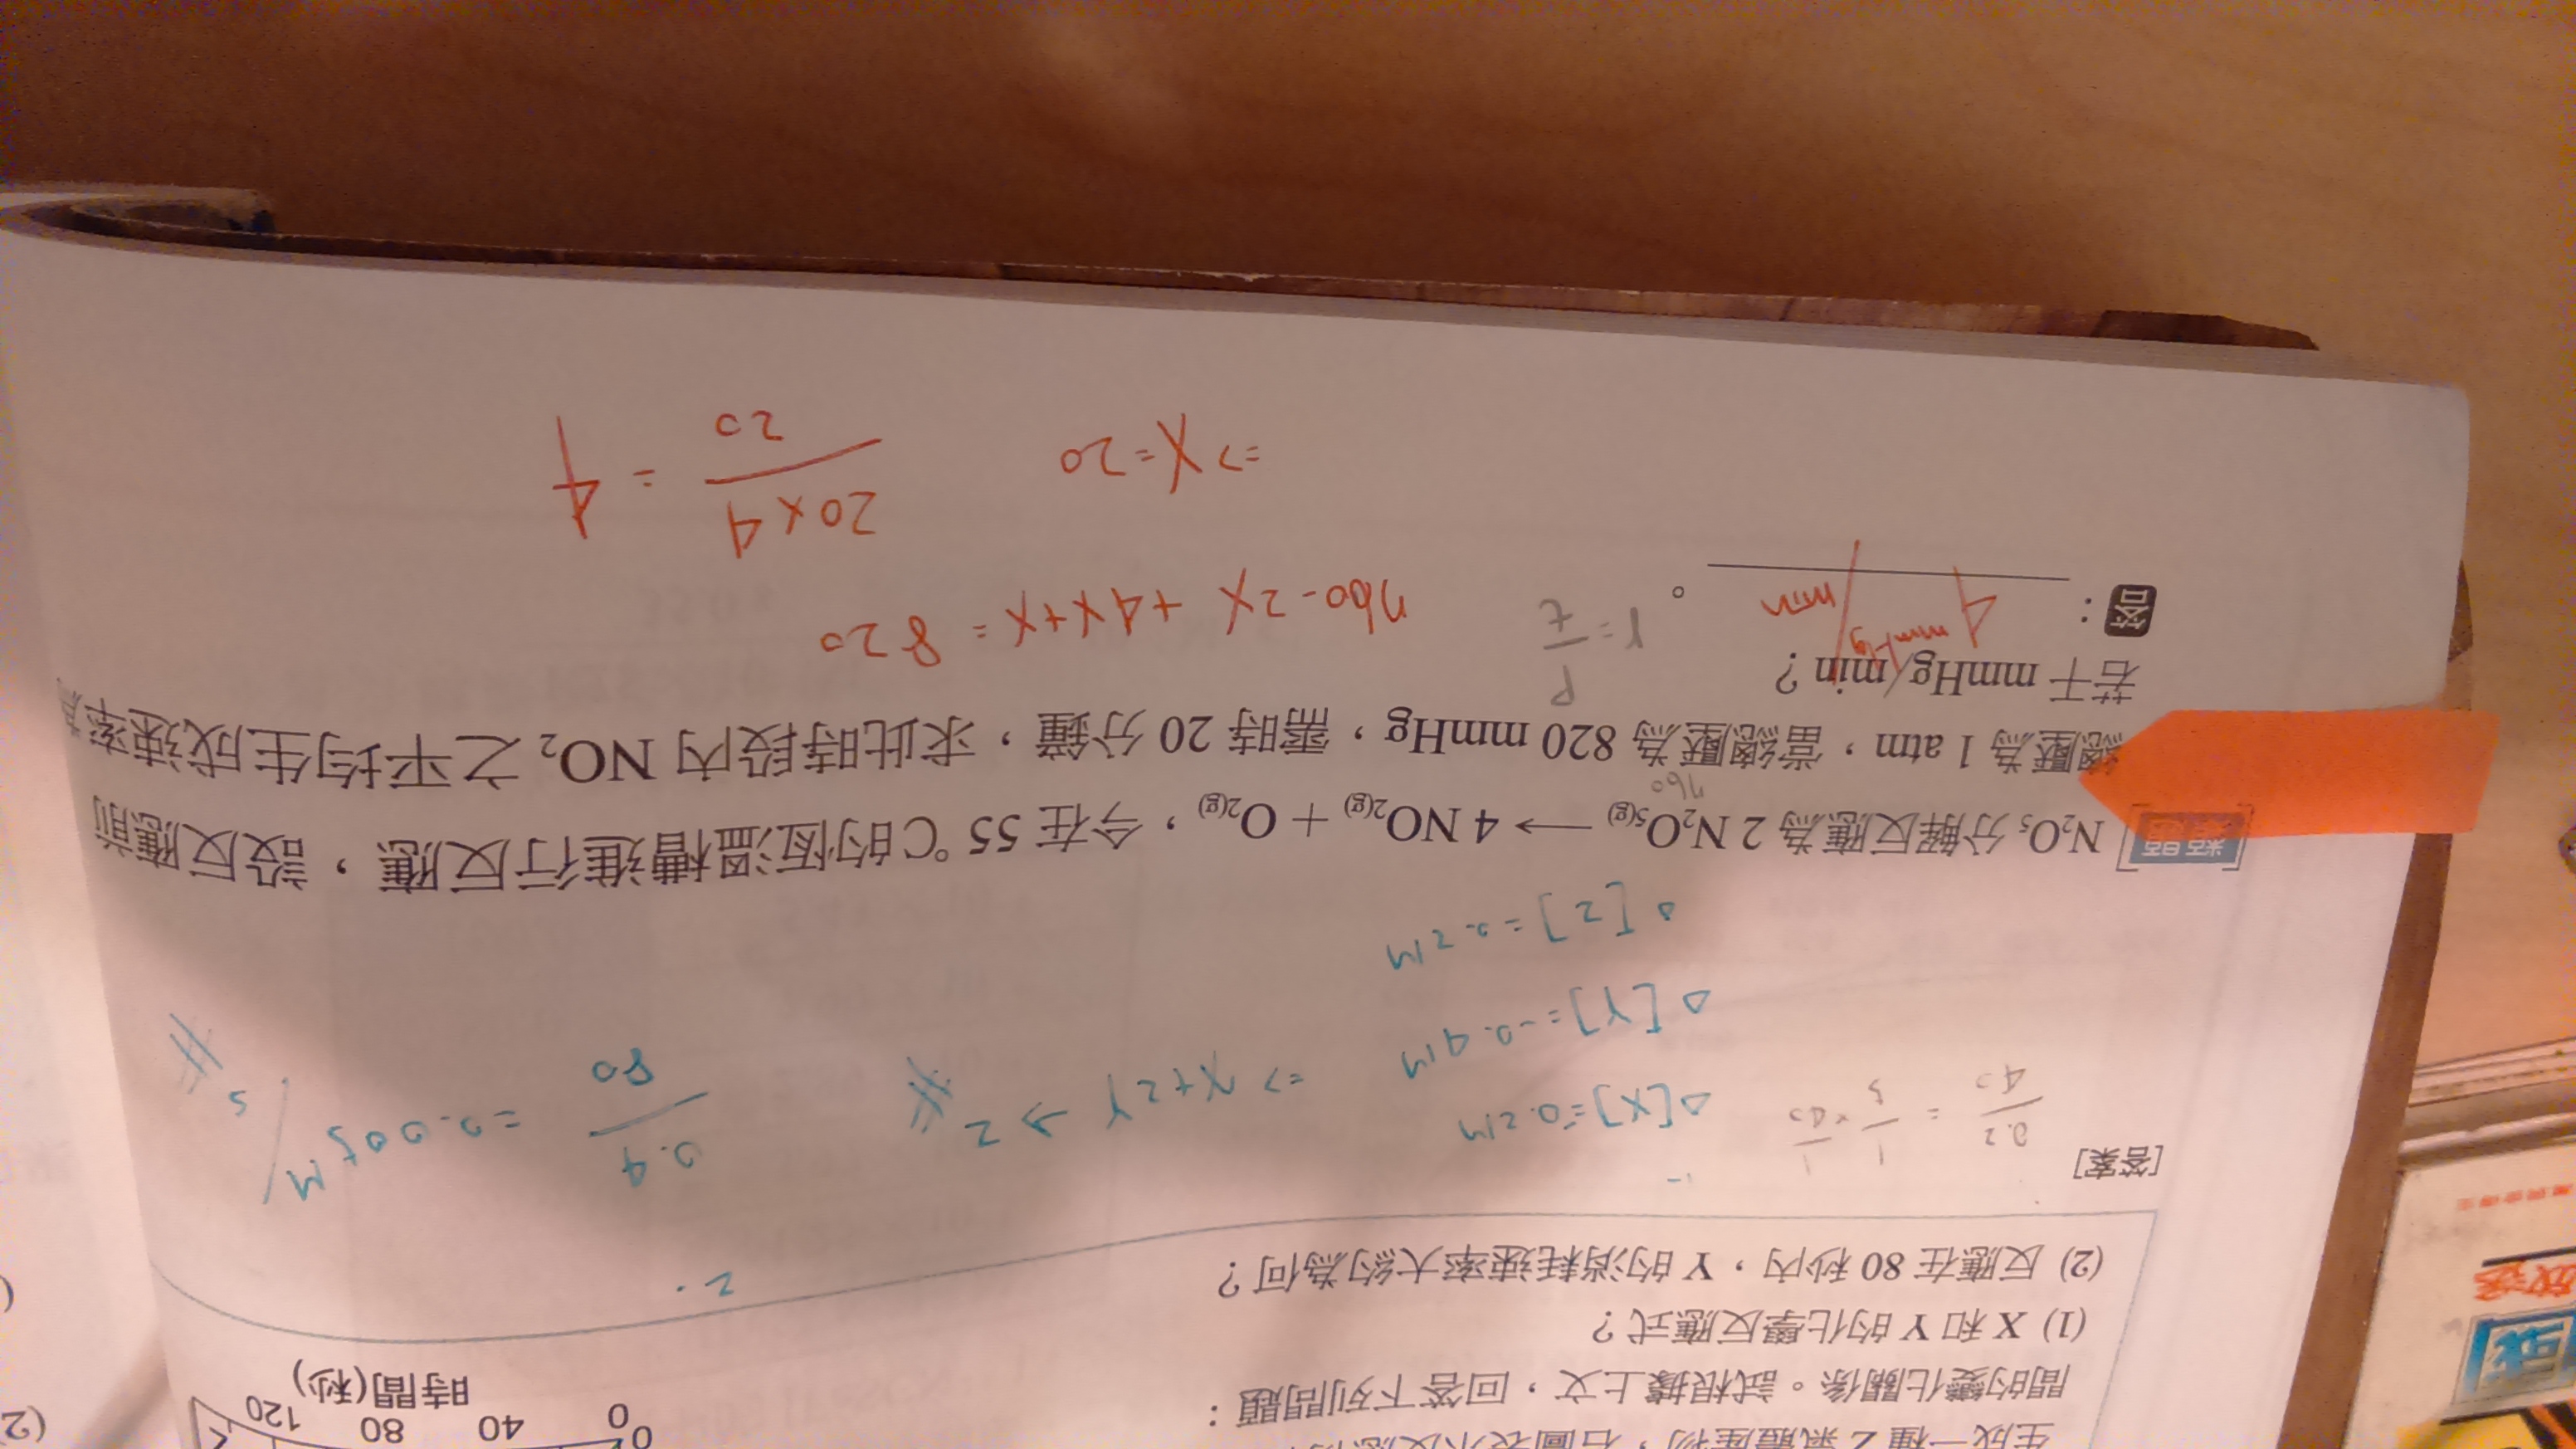 生成一種 Z 氣體產物，右圖表示反應
間的變化關係。試根據上文，回答下列問題：
(1) X 和 Y 的化學反應式？
(2) 反應在 80 秒內，Y 的消耗速率大約為何？
0 40 80 120
0
時間(秒)
2.
[答案]
0.2/40 = 1/5 × 1/40
Δ[X]=0.2M
Δ[Y]=-0.4M
Δ[Z]=0.2M
=> X+2Y → Z #
0.4/80 = 0.005 M/s #
[類題] N₂O₅ 分解反應為 2 N₂O₅(g) → 4 NO₂(g) + O₂(g)，今在 55 ℃的恆溫槽進行反應，設反應前
760
總壓為 1 atm，當總壓為 820 mmHg，需時 20 分鐘，求此時段內 NO₂ 之平均生成速率為
若干 mmHg/min？
答：4 mmHg/min。
r = P/t
760-2X+4X+X=820
=> X=20
20×4/20 = 4
(2)
(